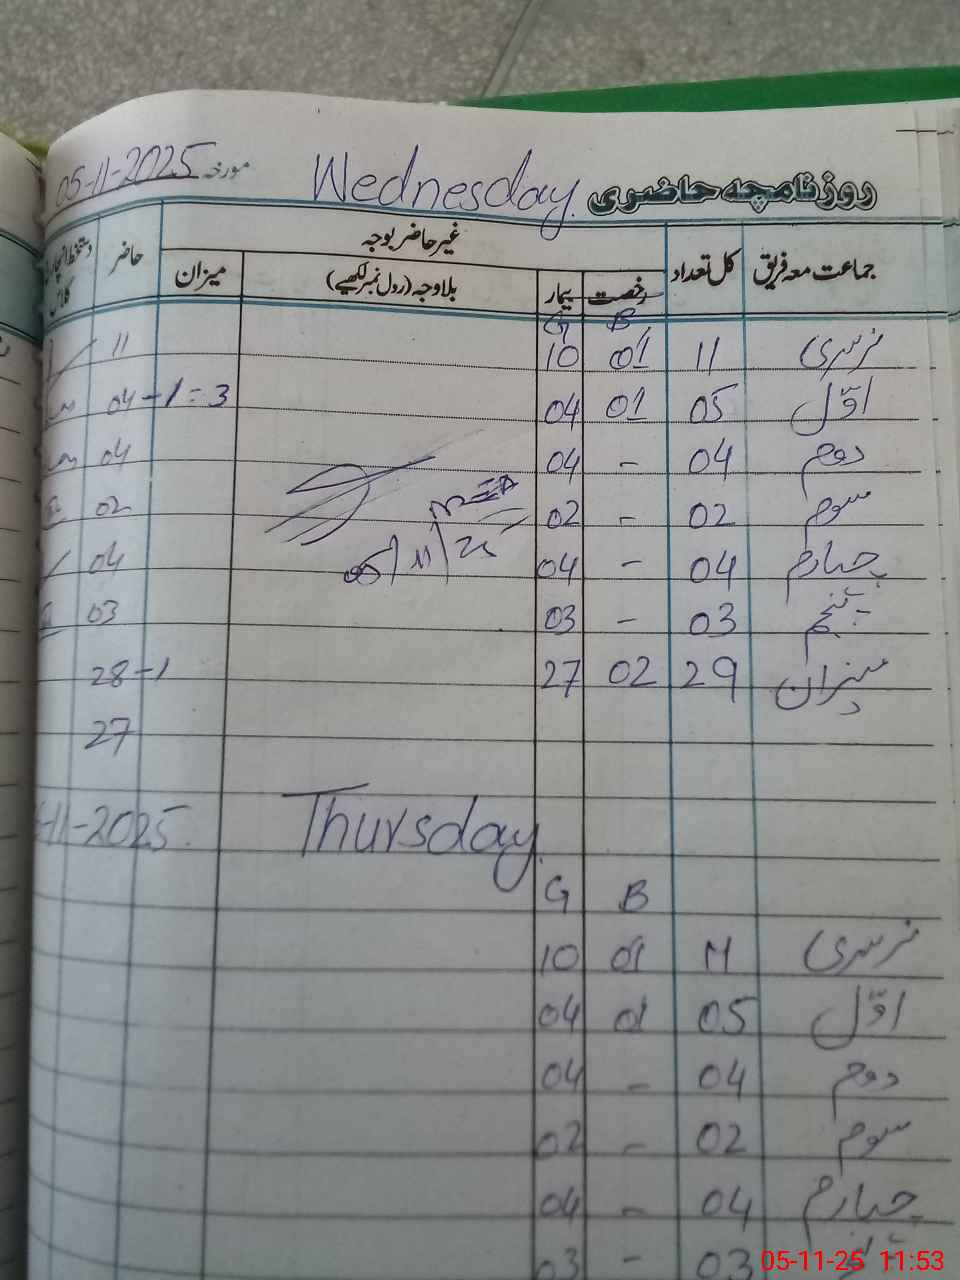 روزنامچہ حاضری Wednesday. مورخہ 05-11-2025
جماعت معہ فریق کل تعداد غیر حاضر بوجہ حاضر
رخصت بیمار بلاوجہ (رول نمبر لکھیے) میزان
B G
نرسری 11 01 10 11
اوّل 05 01 04 04-1=3
دوم 04 - 04 04
سوم 02 - 02 02
چہارم 04 - 04 04
5/11/25
پنجم 03 - 03 03
میزان 29 02 27 28-1
27
Thursday. -11-2025.
B G
نرسری 11 01 10
اوّل 05 01 04
دوم 04 - 04
سوم 02 - 02
چہارم 04 - 04
03 - 03
05-11-25 11:53